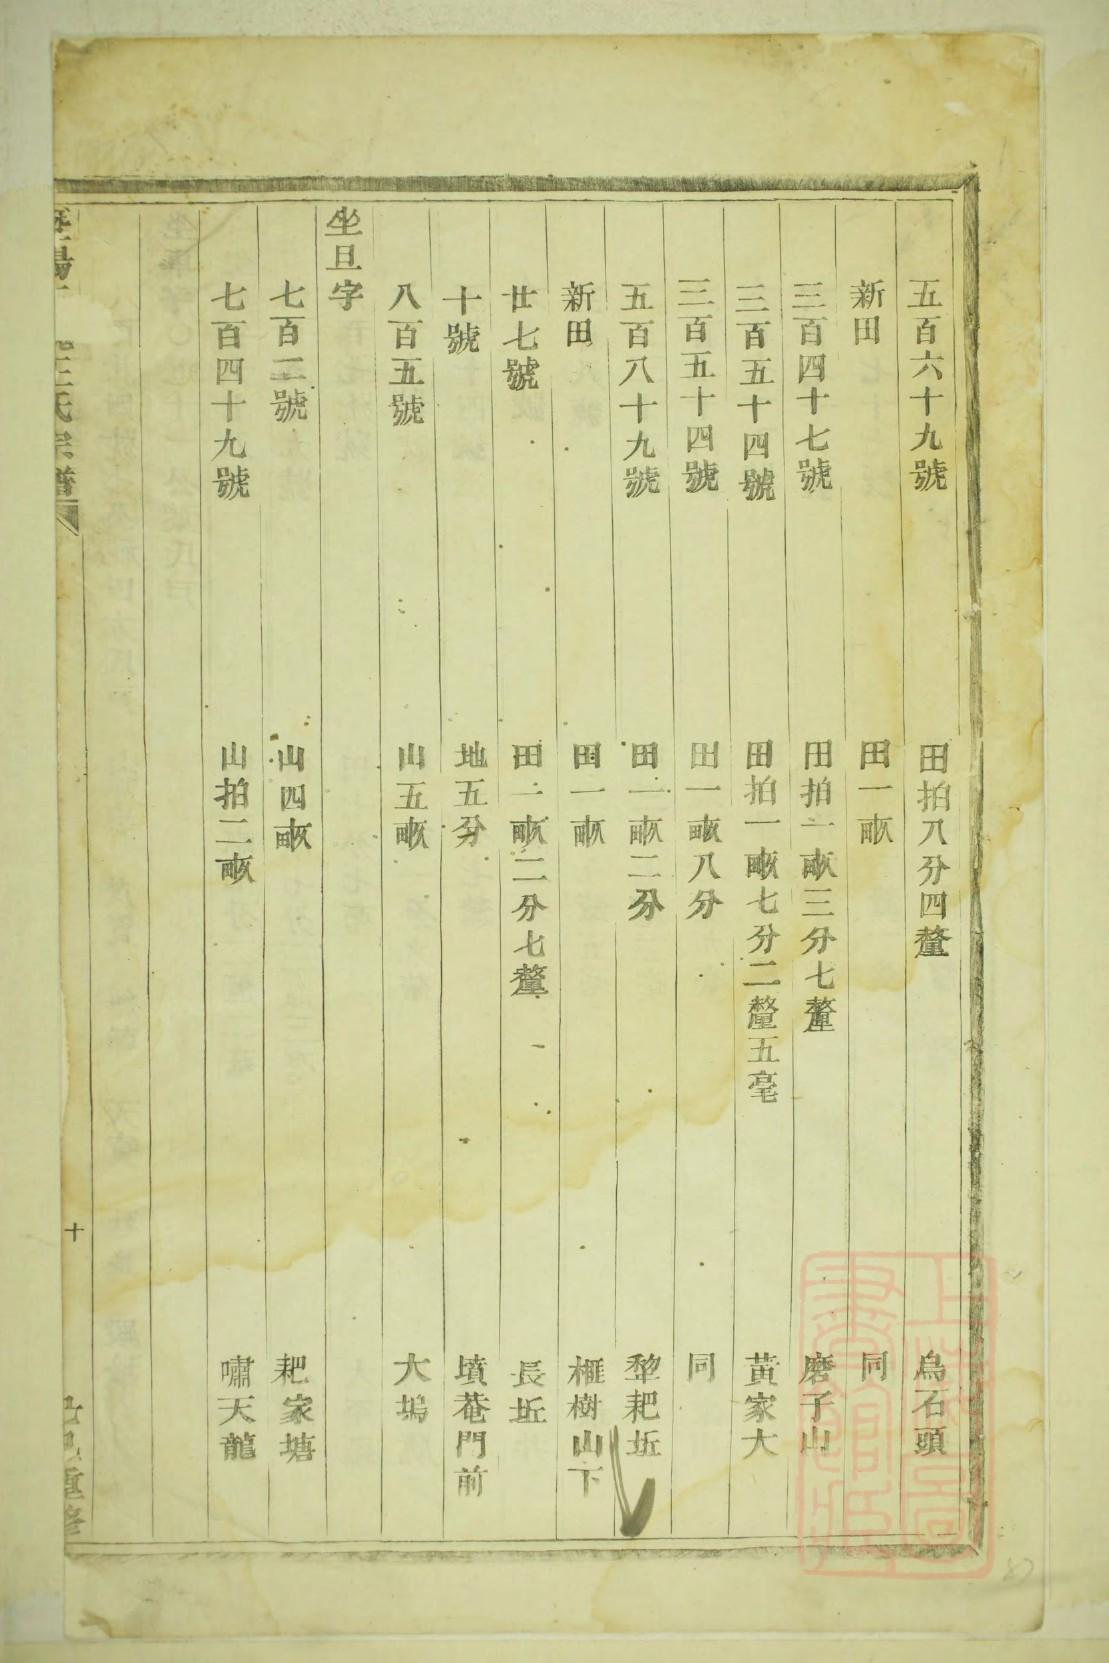 五百六十九號 田拍八分四釐 烏石頭
新田 田一畝 同
三百四十七號 田拍一畝三分七釐 磨子山
三百五十四號 田拍一畝七分二釐五毫 黃家大
三百五十四號 田一畝八分 同
五百八十九號 田一畝二分 犂耙坵
新田 田一畝 榧樹山下
廿七號 田一畝二分七釐 長坵
十號 地五分 墳菴門前
八百五號 山五畝 大塢
坐旦字
七百二號 山四畝 耙家塘
七百四十九號 山拍二畝 嘯天龍
王氏宗譜
十
重修
上海圖書館藏